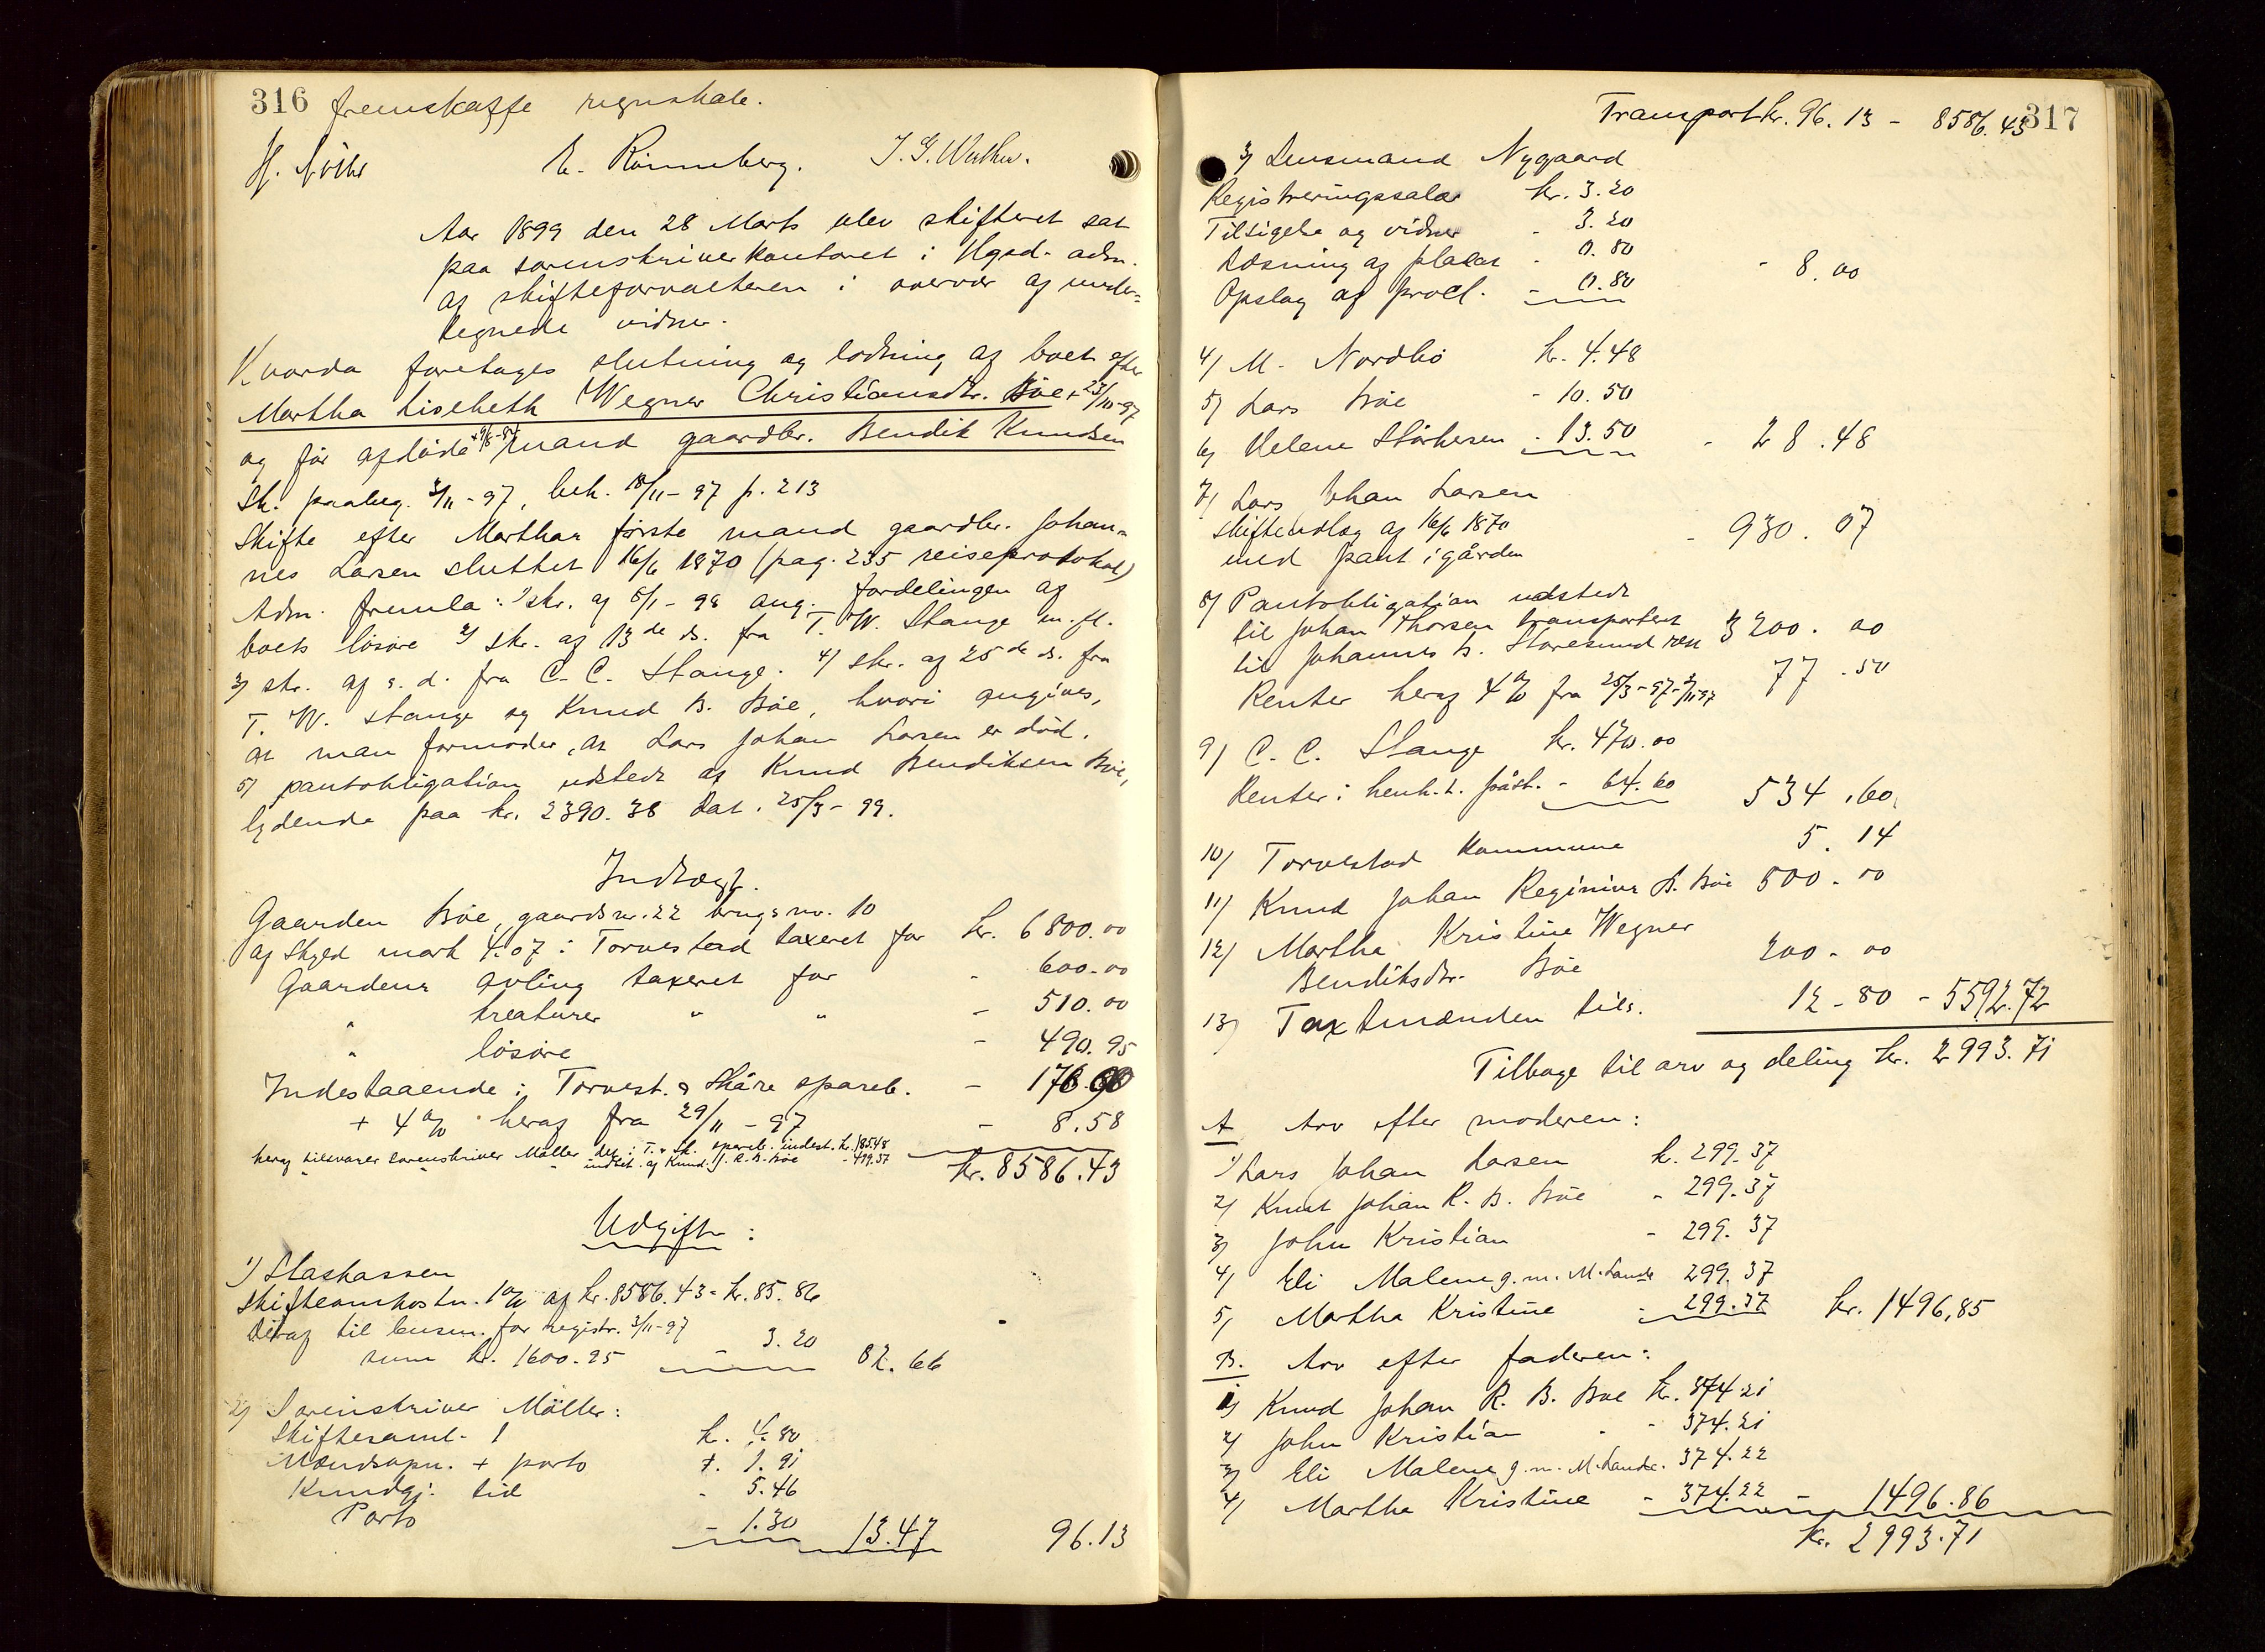 316 fremskaffe regnskab.
E. Rönneberg. J. G. Werther.
Aar 1899 den 28 Marts blev skifteret sat
paa sorenskriverkontoret i Hgsd. adm.
af skifteforvalteren i overvær af under-
tegnede vidner.
Hvorda foretages slutning og lodning af boet efter
Martha Liselbeth Wegner Christiansdtr. Böe + 23/10-97
og för afdöde mand gaardbr. Bendik Knudsen
Sk. paabeg. 3/11-97, beh. 18/11-97 p. 213
Skifte efter Marthas förste mand gaardbr. Johan-
nes Larsen sluttet 16/6 1870 (pag. 235 reiseprotokol)
Adm. fremla: 1) skr. af 5/1-98 ang. fordelingen af
boets lösöre 2) skr. af 13de ds. fra T. W. Stange m. fl.
3) skr. af s. d. fra C. C. Stange. 4) skr. af 25de ds. fra
T. W. Stange og Knud B. Böe, hvori angives,
at man formoder, at Lars Johan Larsen er död.
5) pantobligation udstedt af Knud Bendiksen Böe,
lydende paa kr. 2390.38 dat. 25/3-99.
Indtægt.
Gaarden Böe, gaardsnr. 22 brugsnr. 10
af skyld mark 4.07 i Torvestad taxeret for kr. 6800.00
Gaardens avling taxeret for - 600.00
" kreaturer " " - 510.00
" lösöre - 490.95
Indestaaende i Torvest. & Skåre spareb. - 176.90
+ 4% heraf fra 29/11-97 - 8.58
heraf tilsvarer sorenskriver Möller det i T. & Sk. spareb. indest. kr. 185.48
" " indbet. af Knud J. R. B. Böe - 499.37
kr. 8586.43
Udgift:
1) Staskassen
Skifteomkostn. 1% af kr. 8586.43 = kr. 85.86
Deraf til lensm. for registr. 3/11-97
sum kr. 1600.95 - 3.20 82.66
2) Sorenskriver Möller:
Skiftesaml. 1 kr. 4.80
Mændsopn. + porto +. 1.91
Kundgj. tid - 5.46
Porto - 1.30 13.47 96.13
Transport kr. 96.13 - 8586.43 317
3) Lensmand Nygaard
Registreringssalar kr. 3.20
Tilsigelse og vidner - 3.20
Læsning af placat - 0.80
Opslag af procl. - 0.80 - 8.00
4) M. Nordbö kr. 4.48
5) Lars Böe - 10.50
6) Helene Störkersen - 13.50 - 28.48
7) Lars Johan Larsen
skifteudlæg af 16/6 1870
med pant i gården - 930.07
8) Pantobligation udstedt
til Johan Thorsen transporteret
til Johannes B. Storesund 3200.00
Renter heraf 4% fra 25/3-97-3/11 97 77.50
9) C. C. Stange kr. 470.00
Renter i henh. t. påst. - 64.60 534.60
10) Torvestad kommune 5.14
11) Knud Johan Reginius B. Böe 500.00
12) Martha Kristine Wegner
Bendiksdtr. Böe 200.00
13) Taxtmænden tils. 12.80 - 5592.72
Tilbage til arv og deling kr. 2993.71
A Arv efter moderen:
1) Lars Johan Larsen k. 299.37
2) Knut Johan R. B. Böe - 299.37
3) John Kristian - 299.37
4) Eli Malene g. m. M. Lande 299.37
5) Martha Kristine - 299.37 kr. 1496,85
B. Arv efter faderen:
1) Knud Johan R. B. Böe k. 374.21
2) John Kristian - 374.21
3) Eli Malene g. m. M. Lande. 374.22
4) Martha Kristine - 374.22 - 1496.86
kr. 2993.71